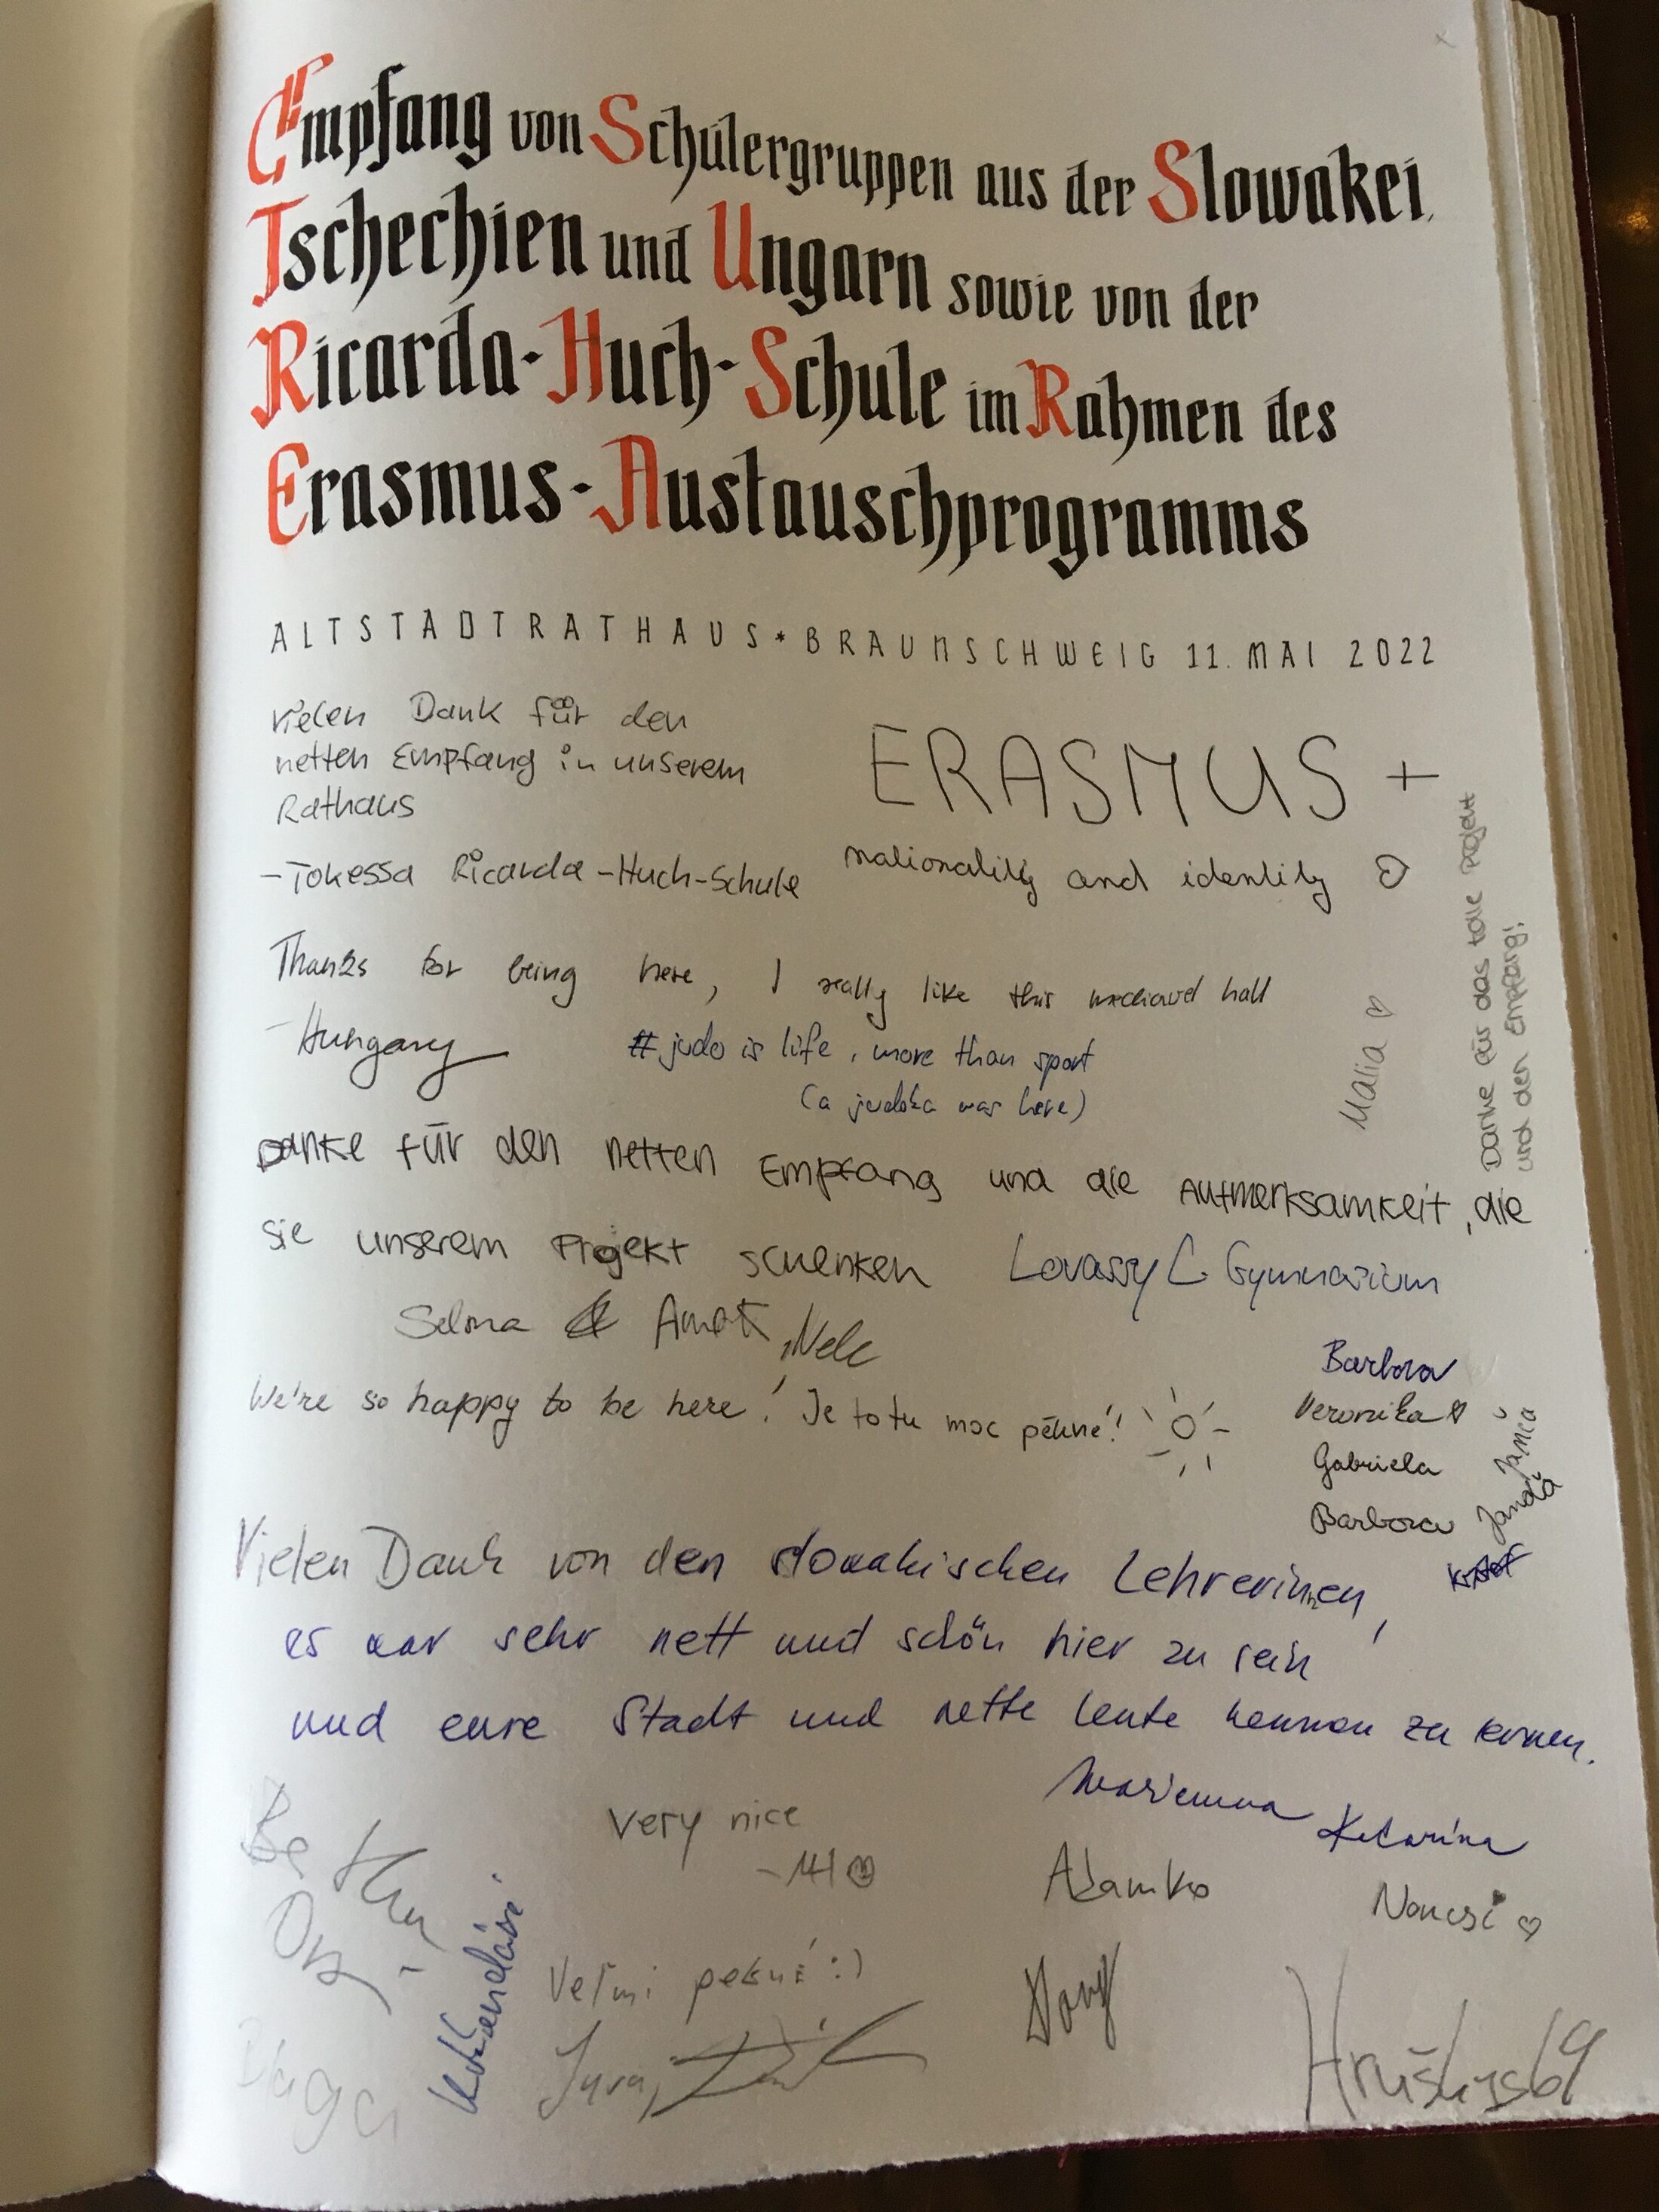 Empfang von Schülergruppen aus der Slowakei,
Tschechien und Ungarn sowie von der
Ricarda-Huch-Schule im Rahmen des
Erasmus-Austauschprogramms
ALTSTADTRATHAUS * BRAUNSCHWEIG 11. MAI 2022
vielen Dank für den
netten Empfang in unserem
Rathaus
- Tokessa Ricarda-Huch-Schule
ERASMUS +
nationality and identity
Danke für das tolle Projekt
und den Empfang!
Malia
Thanks for being here, I really like this medieval hall
- Hungary
# judo is life, more than sport
(a judoka was here)
Danke für den netten Empfang und die Aufmerksamkeit, die
sie unserem Projekt schenken
Lovassy L. Gymnasium
Selma & Amok, Nele
We're so happy to be here! Je to tu moc pěkné!
Barbora
Veronika
Gabriela
Barbora
Vielen Dank von den slowakischen Lehrerinnen,
es war sehr nett und schön hier zu sein
und eure Stadt und nette leute kennen zu lernen.
Marianna
Katarína
very nice
Adamko
Noncsi
Veľmi pekné :)